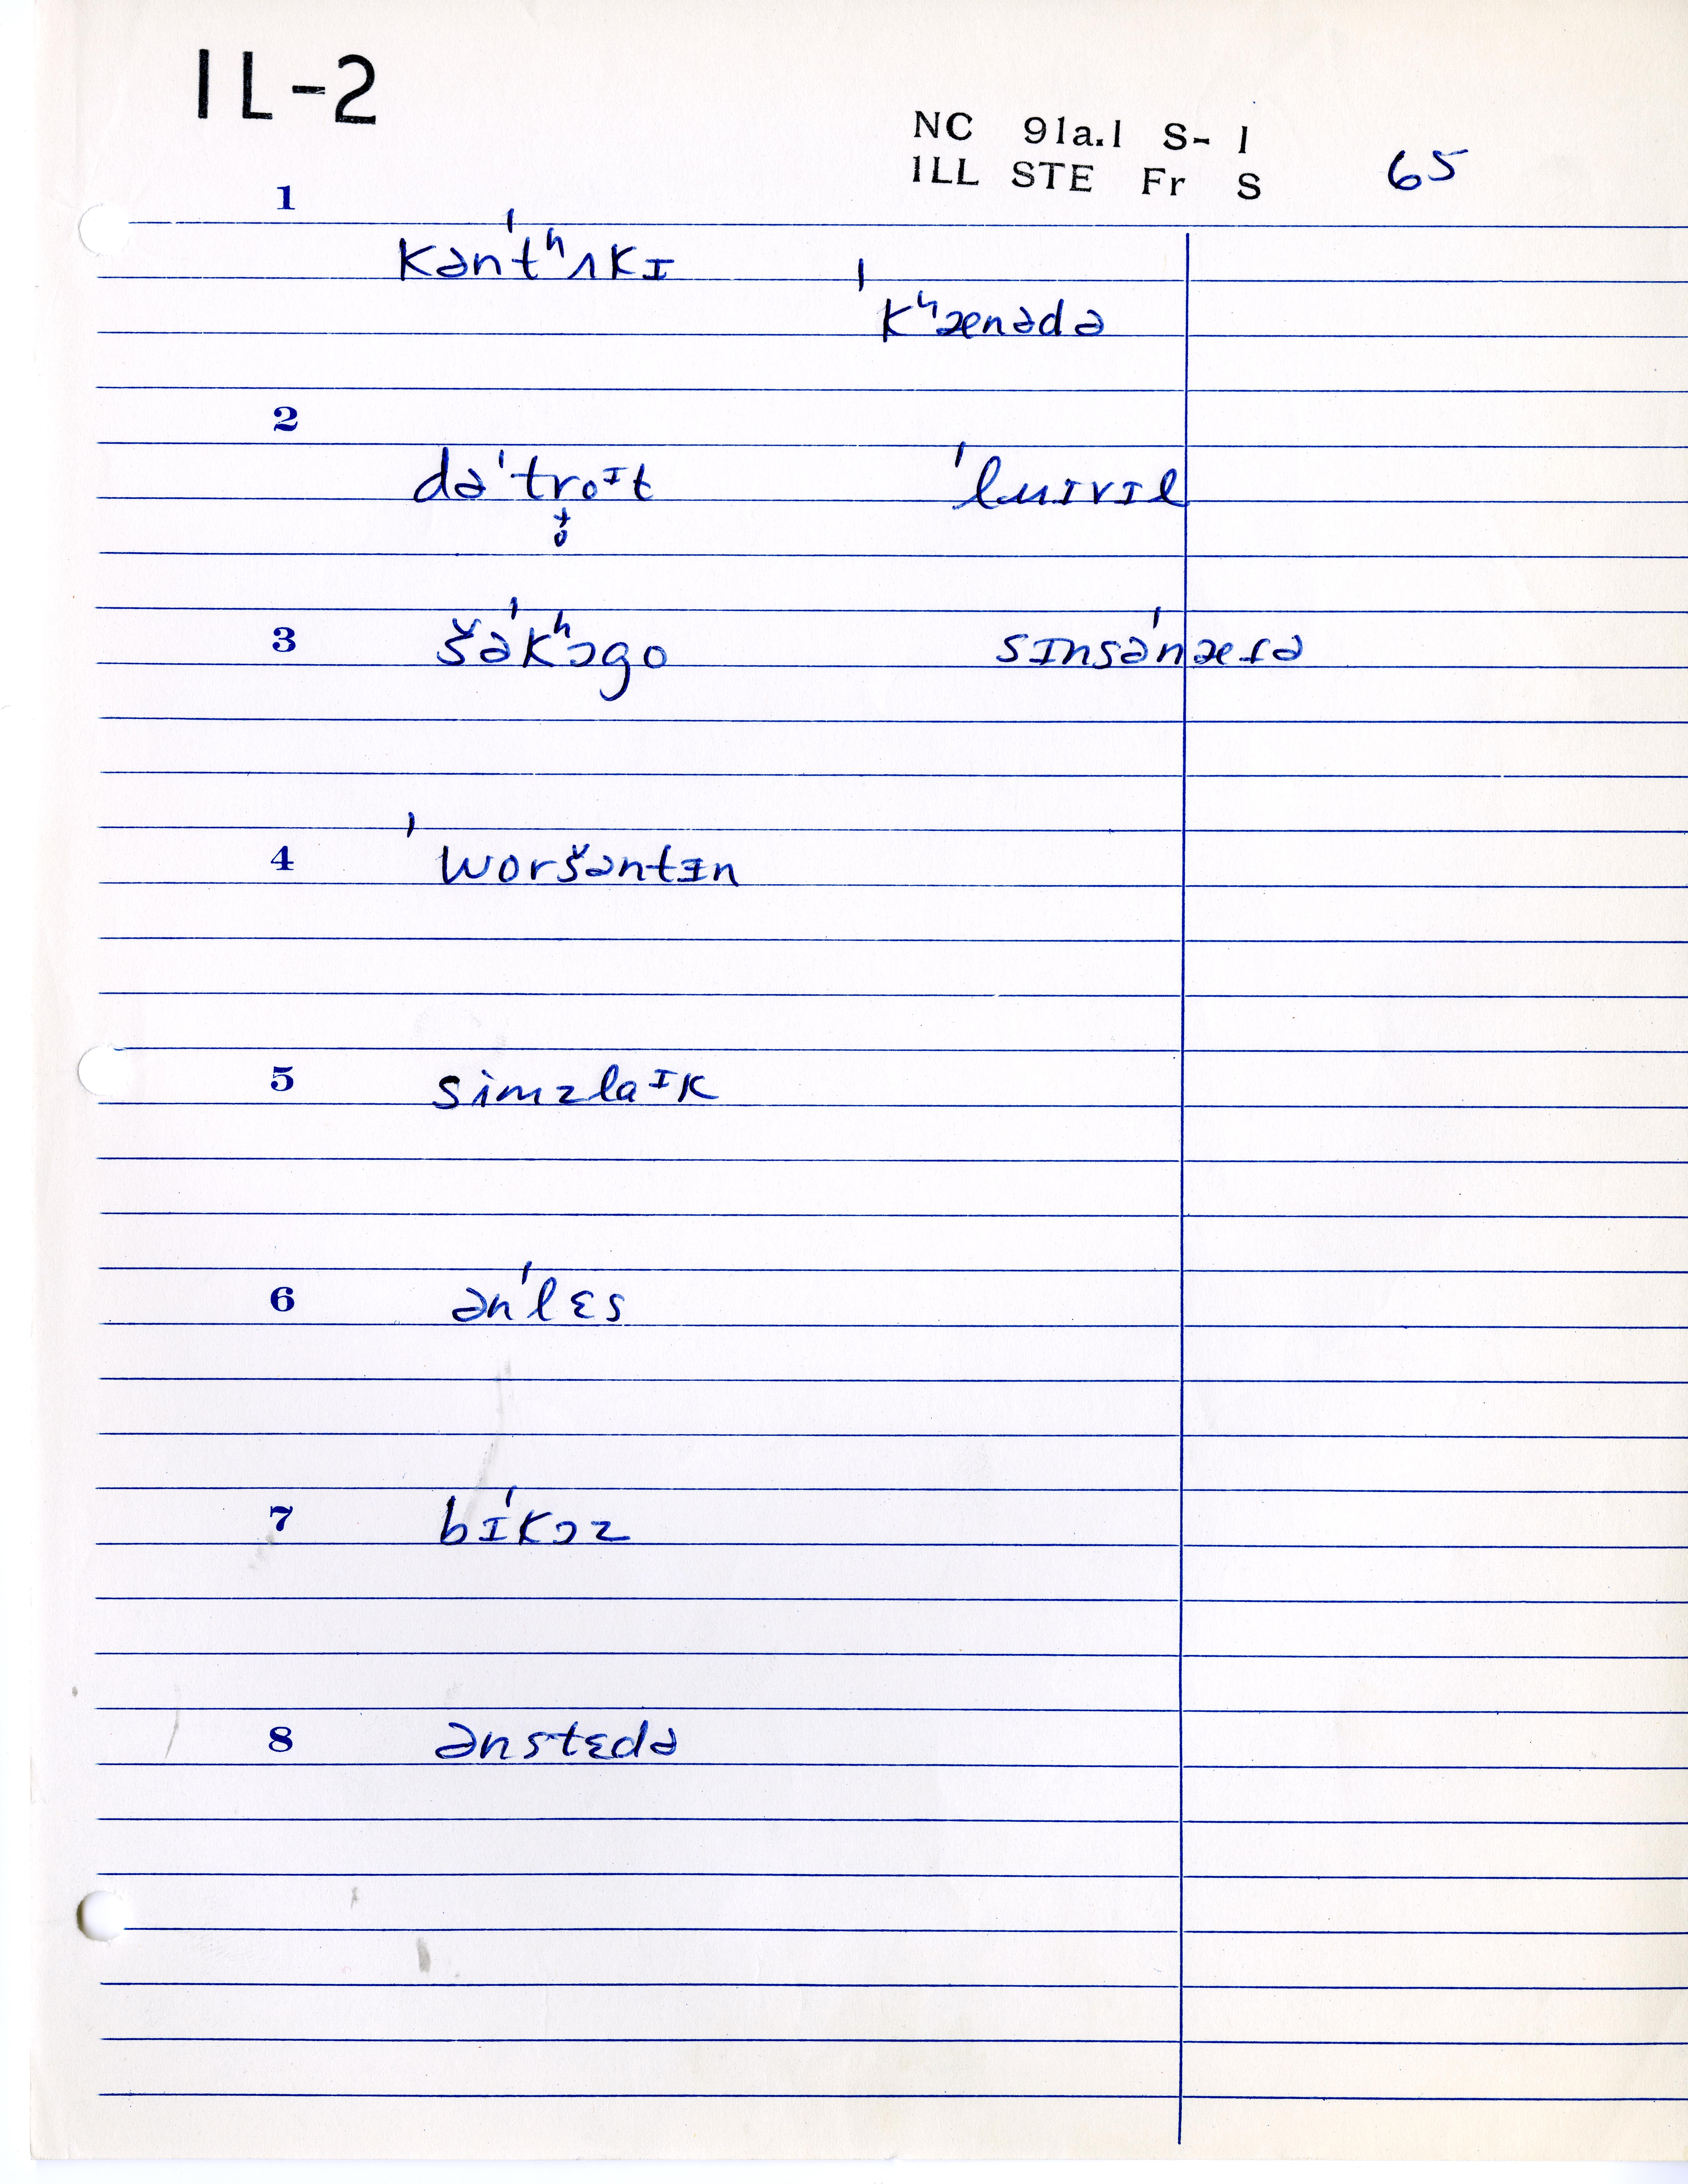 IL-2
NC 91a.1 S- 1
ILL STE Fr S 65
1
kənˈtʰʌkɪ
ˈkʰænədə
2
dəˈtroᶦt ˈluɪvɪl
3 šəˈkʰɔgo sɪnsəˈnæɾə
4 ˈworšəntɪn
5 simzlaᶦk
6 ənˈlɛs
7 bɪˈkɔz
8 ənstɛdə